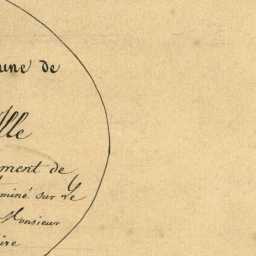 une de
lle
ment de
miné sur le
Monsieur
ire